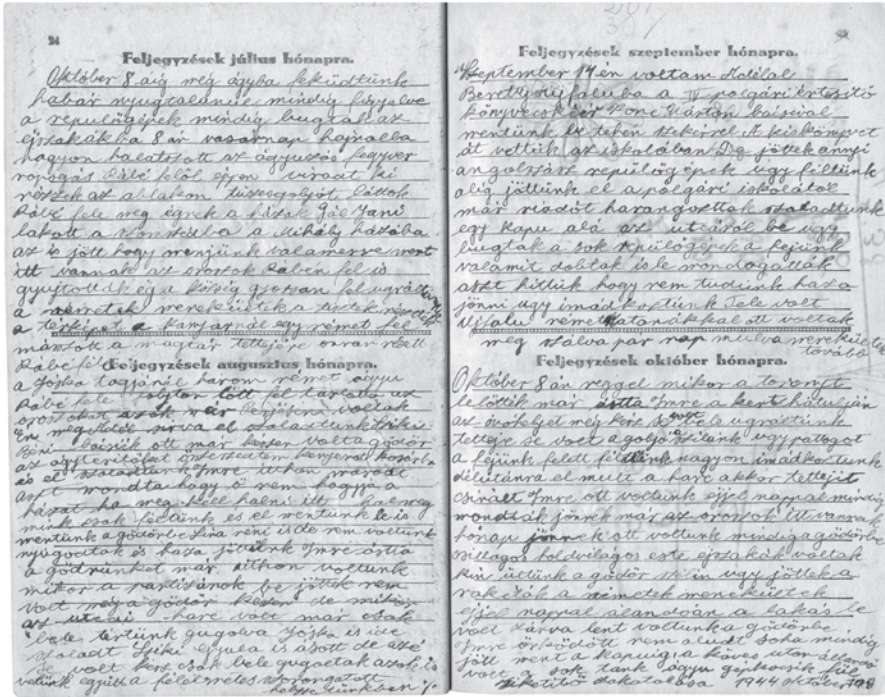 24
Feljegyzések július hónapra.
Október 8 áig még ágyba feküdtünk
habár nyugtalanúl mindig figyelve
a repülőgépek mindig bugtak az
éjszakákba 8 ár vasárnap hajnalba
nagyon halátszott az ágyuzás fegyver
ropogás Rábé felöl éjen viradt ki
nézzek az ablakon tüzesgolyót láttok
Rábé fele meg égnek a házak Gál Jani
lakott a szomszédba a Mihály házába
az is jött hogy menjünk valamerre mert
itt vannak az oroszok Rábén fel is
gyujtották ég a község gyorsan felugráltunk
a németek menekültek a tisztek nézték
a térképet a kamjárnál egy német fel
mászott a magtár tettejére onnan nézett
Rábé felé
Feljegyzések augusztus hónapra.
a Jóska tagjánál három német ágyu
Rábé fele folyton lőtt fel tartotta az
oroszokat azok már lenjáson voltak
én megijedek sirva el szaladtunk Sziki
Béni bácsiék ott már készen volt a gödör
az ágyterítőket összeszedtem kenyeret kosárba
és el szaladtunk Imre itthon maradt
aszt mondta hogy ő nem hagyja a
házat ha meg kell halni itt hal meg
mink csak féltünk és el mentünk le is
mentünk a gödörbe Lina néni is de nem voltunk
nyugodtak és haza jöttünk Imre ásta
a gödrünket már itthon voltunk
mikor a partizánok be jöttek nem
volt még a gödör készen de mikor
az utcai harc volt már csak
bele tértünk gugolva Jóska is ide
szaladt Sziki Gyula is ásott de azé
se volt kész csak bele gugoltak azok is
velünk együtt a félelmetes szorongatott
helyzetünkben
Feljegyzések szeptember hónapra.
Szeptember 14 én voltam Adélal
Berettyóújfaluba a IV polgári értesítő
könyvecskéér Ponc Márton bácsival
mentünk be tehén szekérrel A kiskönyvet
át vettük az iskolában Dg jöttek annyi
angolszász repülőgépek ugy féltünk
alig jöttünk el a polgári iskolától
már riadót harangoztak szaladtunk
egy kapu alá az utcáról be ugy
bugtak a sok repülőgépek a fejünk
valamit dobtak is le mondogatták
aszt hittük hogy nem tudunk haza
jönni ugy imádkoztunk Tele volt
Ujfalu német katonákkal ott voltak
meg szálva pár nap mulva menekültek
tovább
Feljegyzések október hónapra.
Október 8 án reggel mikor a toronyt
lelőtték már ásta Imre a kert hátulján
az óvóhelyet még kész se volt be le ugráltunk
tetteje se volt a golyó szilánk ugy pattogot
a fejünk felett féltünk nagyon imádkoztunk
délutánra el mult a harc akkor tettejit
csinált Imre ott voltunk éjjel nappal mindig
mondták jönnek már az oroszok itt vannak
honap jönnek ott voltunk mindig a gödörbe
csillagos holdvilágos este éjszakák voltak
kin ültünk a gödör szélin ugy jöttek a
rakéták a németek menekültek
éjjel nappal álandóan a lakás le
volt zárva lent voltunk a gödörbe
Imre örködött nem aludt soha mindig
jött ment a kapuig a köves uton állandó
volt a sok tank ágyu gépkocsik fül
siketitő dakatolása 1944 október